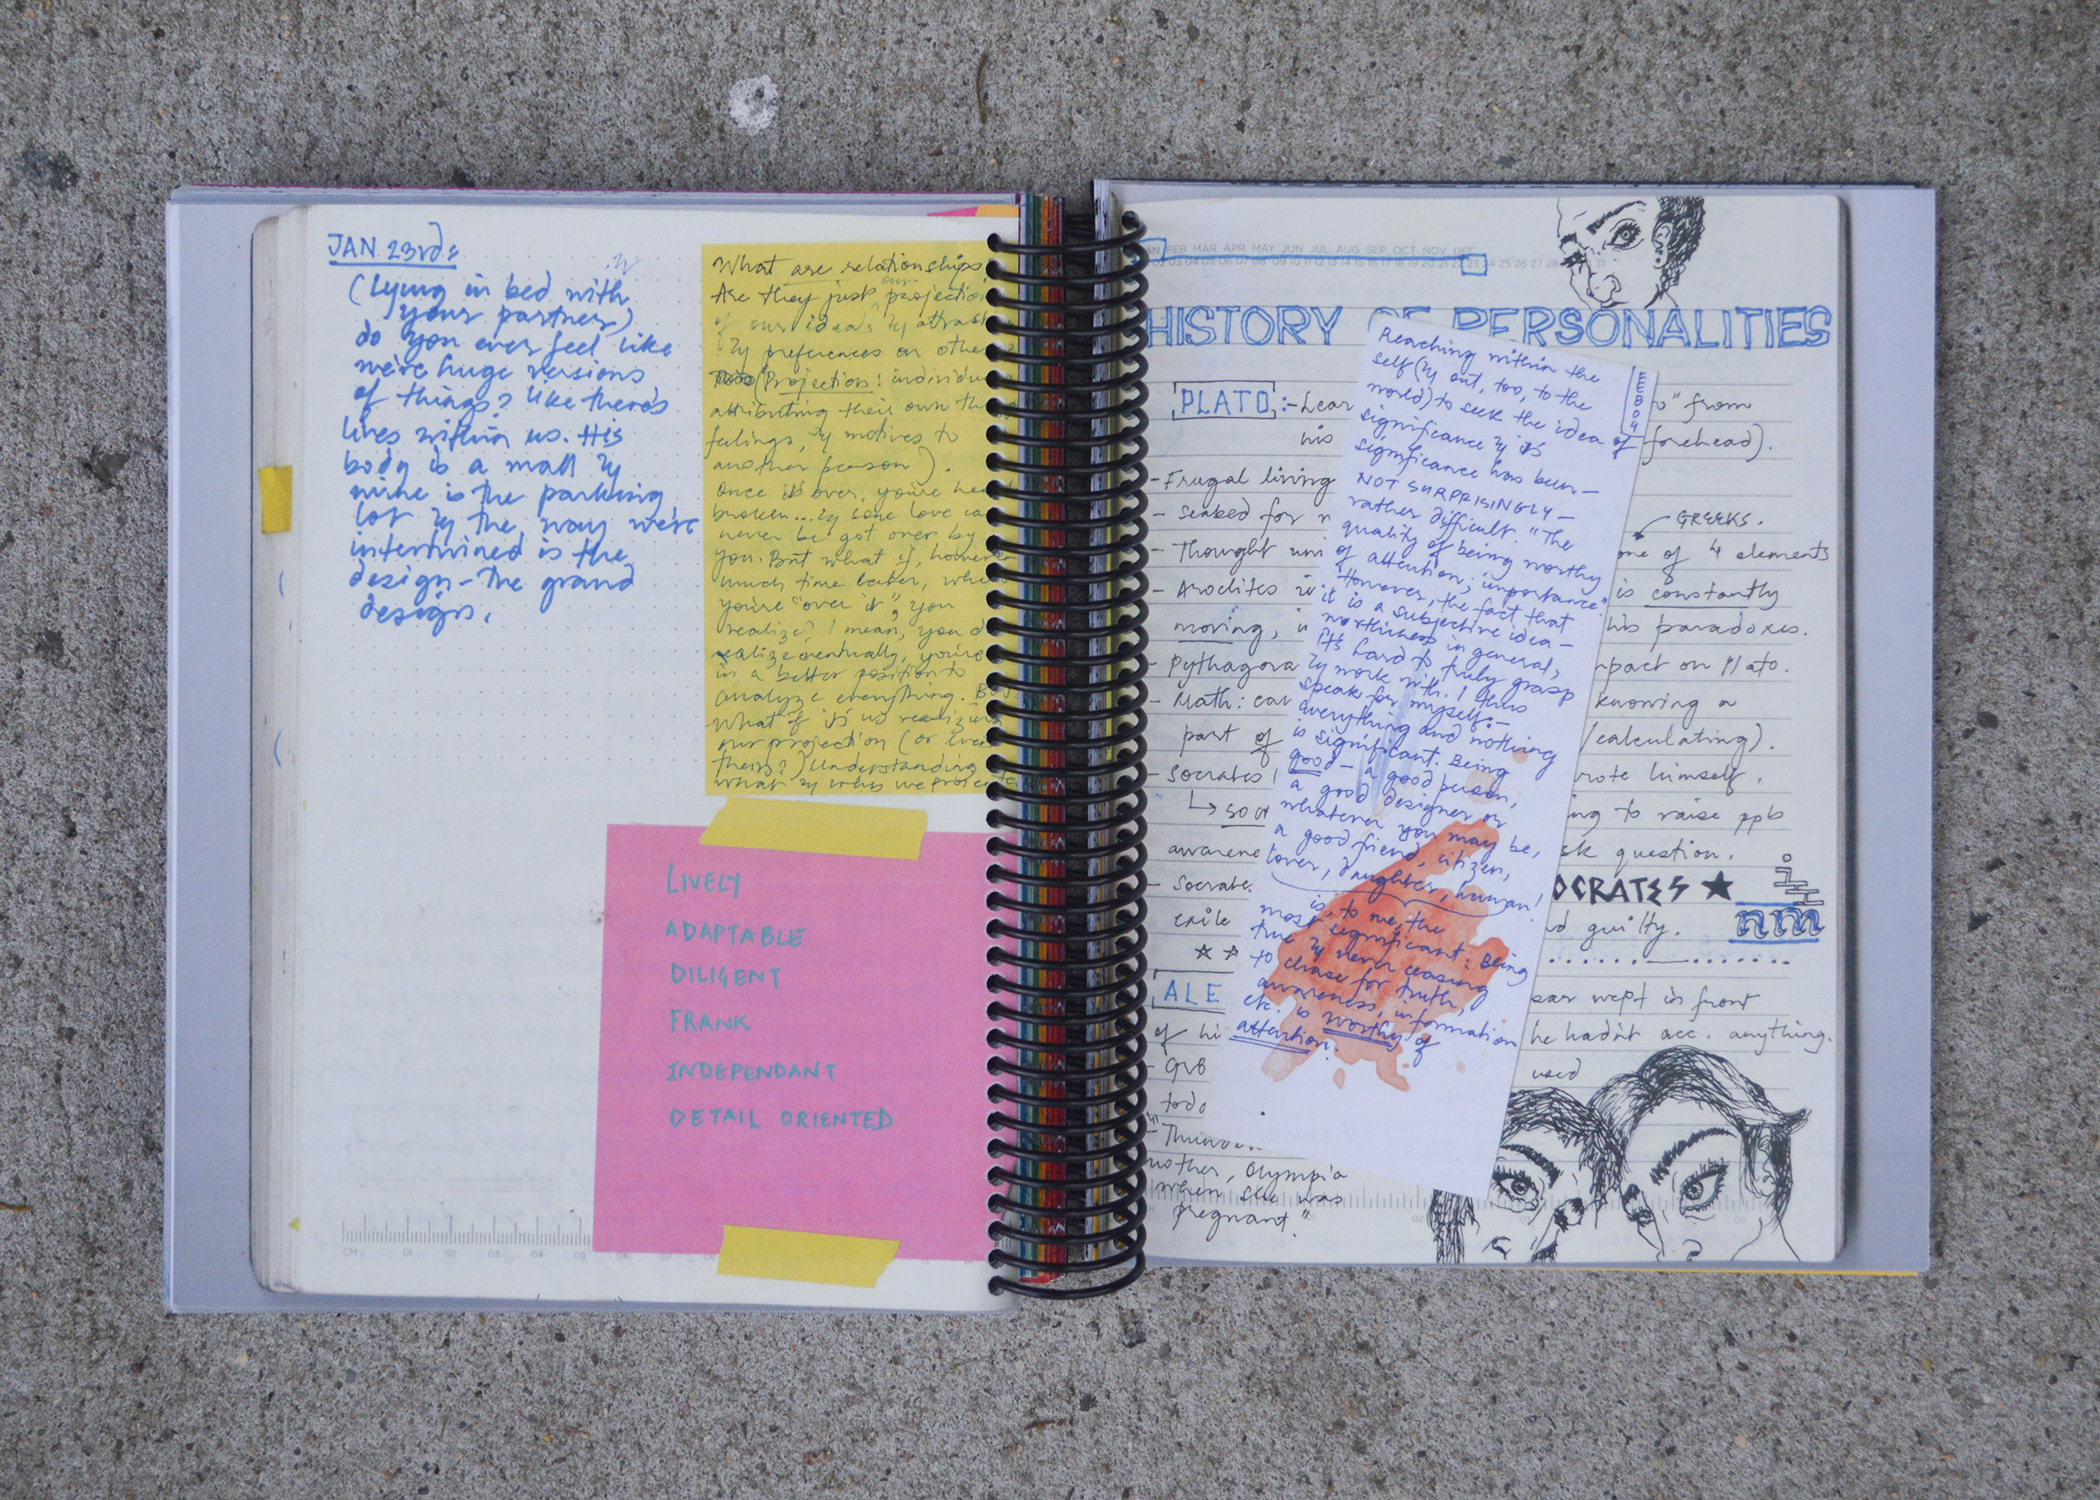 JAN 23rd:
(lying in bed with
your partner)
do you ever feel like
we're huge versions
of things? like there's
lives within us. His
body is a mall &
mine is the parking
lot & the way we're
intertwined is the
design - the grand
design.
What are relationships
Are they just our projection
of our ideas & attract
& preferences on other
(Projection: individu
attributing their own th
feelings, & motives to
another person).
Once it's over, you're hea
broken... & some love ca
never be got over by
you. But what if, however
much time later, when
you're "over it", you
realize? I mean, you d
realize eventually, you're
in a better position to
analyze everything. But
what if it's us realizing
our projection (or even
theirs?) Understanding
what & why we project
LIVELY
ADAPTABLE
DILIGENT
FRANK
INDEPENDANT
DETAIL ORIENTED
CM 01 02 03 04 06 07 08
AN FEB MAR APR MAY JUN JUL AUG SEP OCT NOV DEC
02 03 04 05 06 07 08 09 10 11 12 13 14 15 16 17 18 19 20 21 22 23 24 25 26 27 28 31
HISTORY OF PERSONALITIES
PLATO: - Lear o" from
his forehead).
- Frugal living
- seabed for
GREEKS.
- Thought un one of 4 elements
- is constantly
moving, his paradoxes.
- Pythagora mpact on Plato.
- Math: cal knowing a
part of /calculating).
- Socrates wrote himself.
↳ soc ng to raise ppl's
awarene sk question.
- Socrate OCRATES ★
exile nd guilty.
nm
ALE sar wept in front
of hi he hadn't acc. anything.
used
todo
mother, Olympia
when she was
pregnant"
FEB 04
Reaching within the
self (& out, too, to the
world) to seek the idea of
significance & its
significance has been -
NOT SURPRISINGLY -
rather difficult. "The
quality of being worthy
of attention; importance"
However, the fact that
it is a subjective idea -
worthiness in general,
it's hard to truly grasp
& work with. I thus
speak for myself: -
everything and nothing
is significant. Being
good - a good person,
a good designer or
whatever you may be,
a good friend, citizen,
lover, daughter, human!
is, to me, the
most significant: Being
true & never ceasing
to chase for truth,
awareness, information
etc. is worthy of
attention.